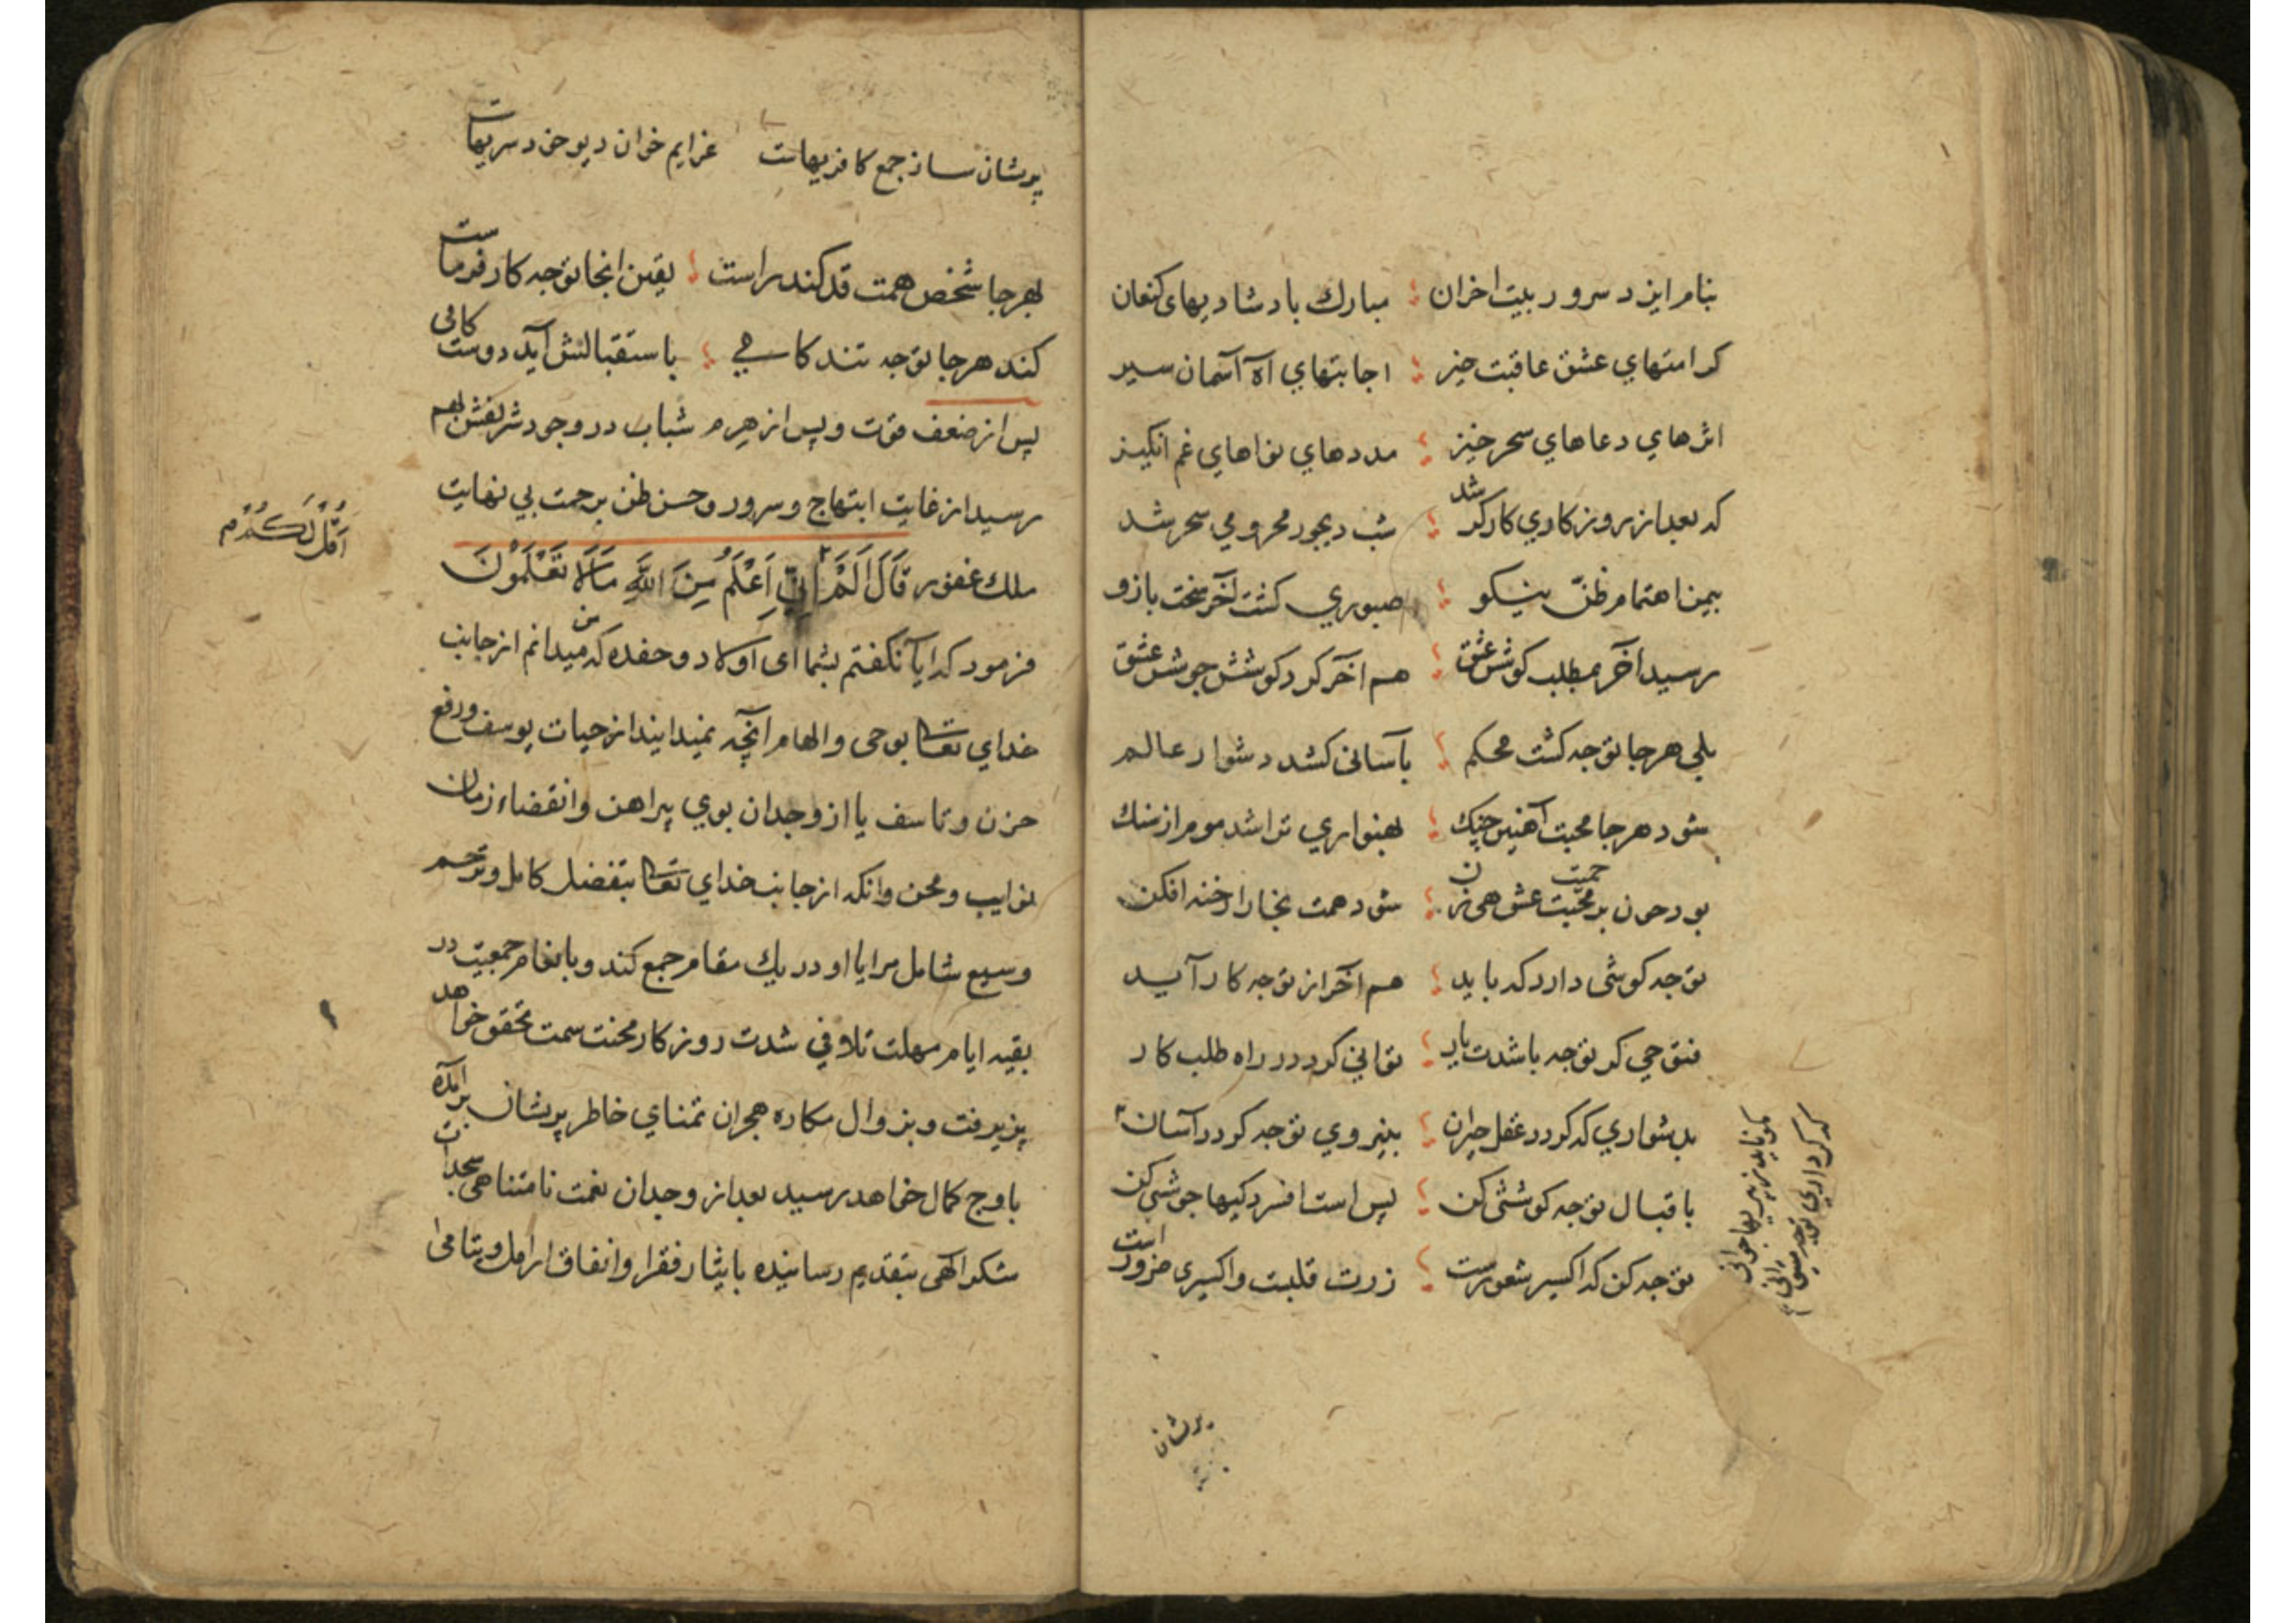 بنام ایزد سرور بیت احزان ؛ مبارك باد شادیهای کنعان
کرامتهاي عشق عاقبت خیر ؛ اجابتهاي آه آسمان سیر
اثرهاي دعاهاي سحر خیز ؛ مددهاي نواهاي غم انکیز
که بعد از روزکاري کارکر شد ؛ شب دیجور محرومي سحر شد
بیمن اهتمام ظنّ نیکو ؛ صبوري کشت آخر سخت بازو
رسید آخر بمطلب کوشش عشق ؛ هم آخر کرد کوشش جوشش عشق
بلي هرجا توجه کشت محکم ؛ بآسانی کشد دشوار عالم
شود هرجا محبت آهنین چنك ؛ بهنواري تراشد موم از سنك
بود چون بر محبت عشق ؛ شود همت بخارا رخنه افکن
توجه کوششی دارد که باید ؛ هم آخر از توجه کار آید
فتوحي کر توجه باشدت یار ؛ تواني کرد در راه طلب کار
بدشواري که کردد عقل حیران ؛ بنیروي توجه کردد آسان
باقبال توجه کوششی کن ؛ بس است افسردکیها جوششی کن
توجه کن که اکسیر شعورست ؛ زرت قلبت و اکسیری ضرور است
که کر داري توجه
پریشان
پریشان ساز جمع کافریهاست عزایم خوان دیو خود سریهاست
بهرجا شخص همت قد کند راست ؛ یقین انجا توجه کارفرماست
کند هرجا توجه تند کامي ؛ باستقبالش آید دوست کامی
پس از ضعف قوت و پس از هرم شباب در وجود شریفش بهم
رسید از غایت ابتهاج و سرور و حسن ظن برحمت بي نهایت
ملك غفور قَالَ اَلَمْ اِنِّي اَعْلَمُ مِنَ اللّٰهِ مَالَا تَعْلَمُوْنَ
اَقُلْ لَكُمْ
فرمود که ایا نکفتم بشما ای اولاد و حفده که من میدانم از جانب
خداي تعالی بوحی و الهام آنچه نمیدانید از حیات یوسف و رفع
حزن و تاسف یا از وجدان بوي پیراهن و انقضاء زمان
نوایب و محن و انکه از جانب خداي تعالی بتفضل کامل و ترحم
وسیع شامل مرا یا او در یك مقام جمع کند و بانغام جمعیت در
بقیه ایام مهلت تلافي شدت روزکار محنت سمت تحقق خواهد
پزیرفت و بزوال مکاره هجران تمناي خاطر پریشان برآمده
باوج کمال خواهد رسید بعد از وجدان نعمت نامتناهی سجدات
شکر الهی بتقدیم رسانیده بایثار فقرا و انفاق ارامل و یتامی